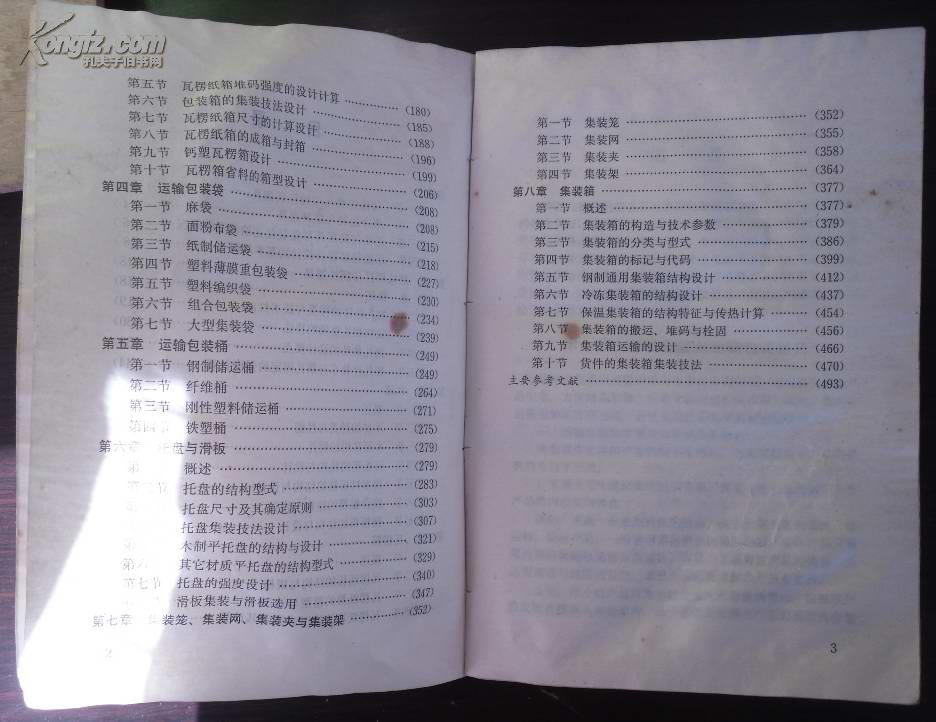 Kongfz.com
孔夫子旧书网
第五节 瓦楞纸箱堆码强度的设计计算 (180)
第六节 包装箱的集装技法设计 (185)
第七节 瓦楞纸箱尺寸的计算设计 (188)
第八节 瓦楞纸箱的成箱与封箱 (196)
第九节 钙塑瓦楞箱设计 (199)
第十节 瓦楞箱省料的箱型设计 (206)
第四章 运输包装袋 (208)
第一节 麻袋 (208)
第二节 面粉布袋 (215)
第三节 纸制储运袋 (218)
第四节 塑料薄膜重包装袋 (227)
第五节 塑料编织袋 (230)
第六节 组合包装袋 (234)
第七节 大型集装袋 (239)
第五章 运输包装桶 (249)
第一节 钢制储运桶 (249)
第二节 纤维桶 (264)
第三节 刚性塑料储运桶 (271)
第四节 铁塑桶 (275)
第六章 托盘与滑板 (279)
第 概述 (279)
第二节 托盘的结构型式 (283)
托盘尺寸及其确定原则 (303)
托盘集装技法设计 (307)
第 木制平托盘的结构与设计 (321)
第六 其它材质平托盘的结构型式 (329)
第七节 托盘的强度设计 (340)
滑板集装与滑板选用 (347)
第七章 集装笼、集装网、集装夹与集装架 (352)
2
第一节 集装笼 (352)
第二节 集装网 (355)
第三节 集装夹 (358)
第四节 集装架 (364)
第八章 集装箱 (377)
第一节 概述 (377)
第二节 集装箱的构造与技术参数 (379)
第三节 集装箱的分类与型式 (386)
第四节 集装箱的标记与代码 (399)
第五节 钢制通用集装箱结构设计 (412)
第六节 冷冻集装箱的结构设计 (437)
第七节 保温集装箱的结构特征与传热计算 (454)
第八节 集装箱的搬运、堆码与栓固 (456)
第九节 集装箱运输的设计 (466)
第十节 货件的集装箱集装技法 (470)
主要参考文献 (493)
3